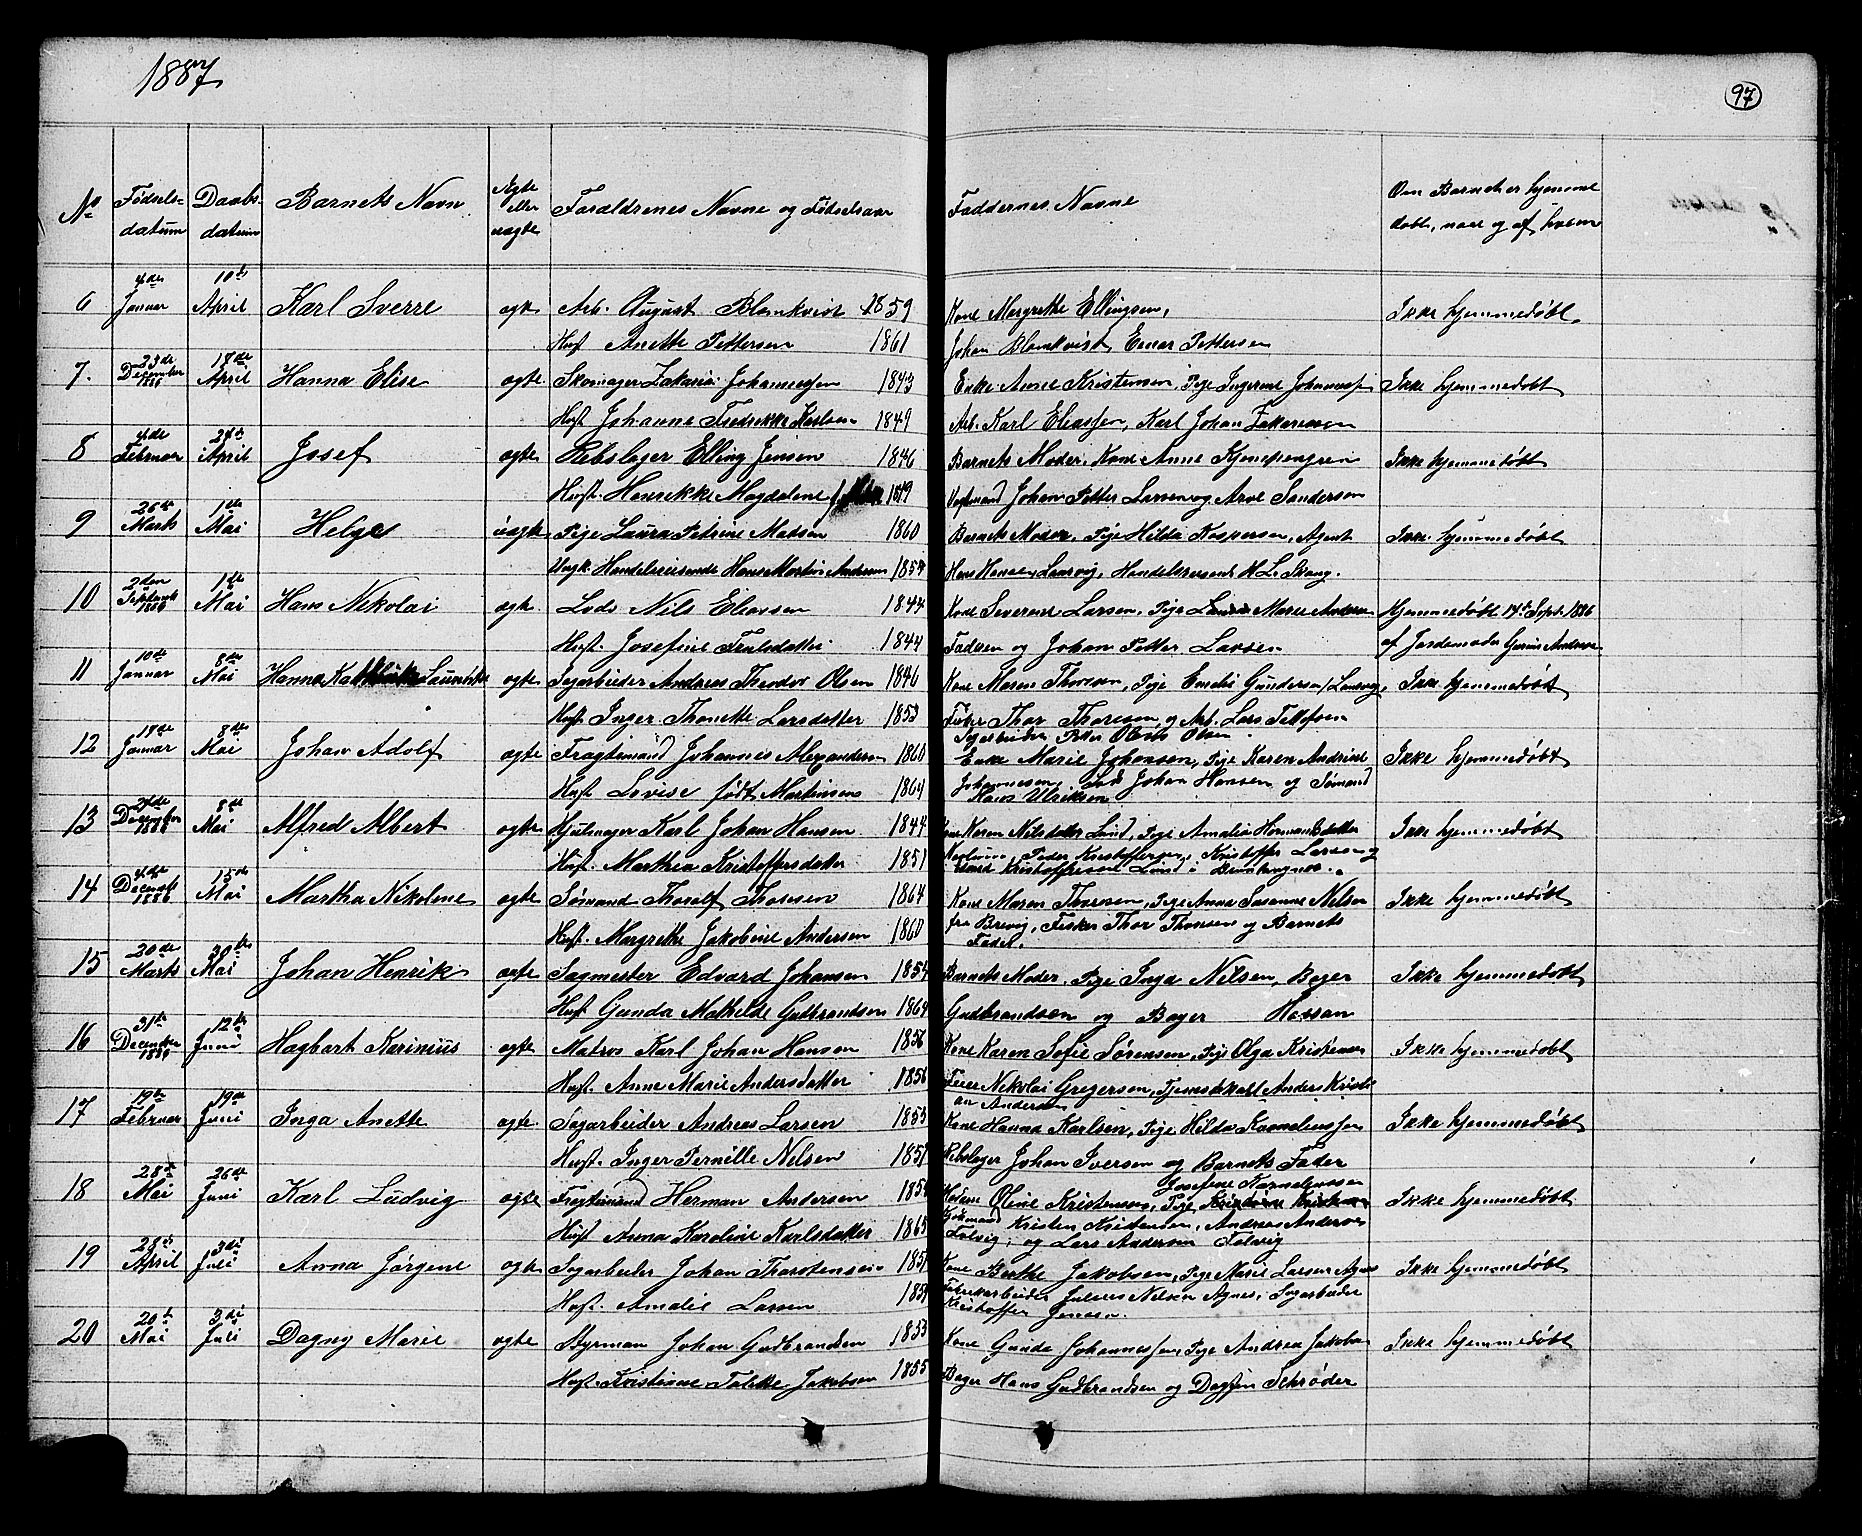 1887
97
No
Fødsels-
datum
Daabs-
datum
Barnets Navn
Ægte
eller
uægte
Forældrenes Navne og Fødselsaar
Faddernes Navne
Om Barnet er hjemme
døbt, naar og af hvem
6 4de Januar 10de April Karl Sverre ægte Arb. August Blomkvist 1859 Kone Margrethe Ellingsen, Ikke hjemmedøbt
Hust. Anette Pettersen 1861 Johan Blomkvist, Einar Pettersen
7. 23de December 1886 18de April Hanna Elise ægte Skomager Zakarias Johannessen 1843 Enke Anne Kristensen, Pige Ingerine Johannessen Ikke hjemmedøbt
Hust. Johanne Fredrikke Karlsen 1849 Arb. Karl Eliassen, Karl Johan Zakariassen
8 4de Februar April Josef ægte Rebslager Elling Jensen 1846 Barnets Moder, Kone Anne Ikke hjemmedøbt
Hust. Henrikke Magdalene 1849 Johan Petter Larsen og Arne Sanderson
9 26de Marts 1de Mai Helge uægte Pige Laura Petrine Madsen 1860 Barnets Moder, Pige Hilda Kaspersen, Agent Ikke hjemmedøbt
Ungk. Handelsreisende Hans Martin Andersen Hans Hansen, Laurvig, Handelsreisende H. L. Skaug.
10 2den September 1886 1de Mai Hans Nikolai ægte Lods Nils Eliassen 1844 Kone Severine Larsen, Pige Laura Marie Andersen Hjemmedøbt 14de Septr. 1886
Hust. Josefine Trulsdatter 1844 Faderen og Johan Petter Larsen af Jordemoder Andersen
11 10de Januar 8de Mai Hanna ægte Sagarbeider Andreas Theodor Olsen 1846 Kone Maren Thoresen, Pige Emelie Gundersen, Laurvig, Ikke hjemmedøbt
Hust. Inger Thonette Larsdatter 1853 Fisker Thor Thoresen, og Arb. Lars Tellefsen
Sagarbeider Peter Olaus Olsen.
12 19de Januar 8de Mai Johan Adolf ægte Fragtemand Johannes Alexandersen 1860 Enke Marie Johansen, Pige Karen Andrine Ikke hjemmedøbt
Hust. Lovise født Martinsen 1864 Johannessen, Johan Hansen og Sømand
Hans Ulriksen
13 December 1886 8de Mai Alfred Albert ægte Hjulmager Karl Johan Hansen 1844 Kone Karen Nilsdatter Lund, Pige Amalia Hermansdatter Ikke hjemmedøbt
Hust. Marthea Kristoffersdatter 1851 Peder Kristoffersen, Kristoffer Larsen og
Kristoffersen Lund i
14 4de December 1886 15de Mai Martha Nikoline ægte Sømand Thoralf Thoresen 1864 Kone Maren Thoresen, Pige Anna Susanne Nilsen Ikke hjemmedøbt
Hust. Margrethe Jakobine Andersen 1860 fra Brevig, Fisker Thor Thoresen og Barnets
Fader.
15 20de Marts Mai Johan Henrik ægte Sagmester Edvard Johansen 1854 Barnets Moder, Pige Inga Nilsen, Bager Ikke hjemmedøbt
Hust. Gunda Mathilde Gulbrandsen 1864 Gudbrandsen og Bager Hassan
16 31te December 1886 12te Juni Hagbart Karinius ægte Matros Karl Johan Hansen 1856 Kone Karen Sofie Sørensen, Pige Olga Kristensen Ikke hjemmedøbt
Hust. Anne Marie Andersdatter 1856 Feier Nikolai Gregersen, Tjenestekarl Anders Kristi
an Andersen
17 19de Februar 19de Juni Inga Anette ægte Sagarbeider Andreas Larsen 1853 Kone Hanna Karlsen, Pige Hilda Korneliussen Ikke hjemmedøbt
Hust. Inger Pernille Nelsen 1851 Rebslager Johan Iversen og Barnets Fader
18 28de Mai 26de Juni Karl Ludvig ægte Fragtemand Herman Andersen Josefine Korneliussen
Madame Oline Kristensen, Pige Ikke hjemmedøbt
Hust. Anna Karoline Karlsdatter 1865 Kristen Kristensen, Andreas Andersen
Tolvig, og Lars Andersen Tolvig
19 April 3die Juli Anna Jørgine ægte Sagarbeider Johan Thorstensen Kone Berthe Jakobsen, Pige Marie Larsen Agnes Ikke hjemmedøbt
Hust. Amalie Larsen Fabrikarbeider Julius Nelsen Agnes, Sagarbeider
Kristoffer Jensen.
20 20de Mai 3die Juli Dagny Marie ægte Styrman Johan Gudbrandsen 1853 Kone Gunda Johannessen, Pige Andrea Jakobsen Ikke hjemmedøbt
Hust. Kristiane Tolette Jakobsen 1855 Bager Hans Gudbrandsen og Dagfin Schrøder